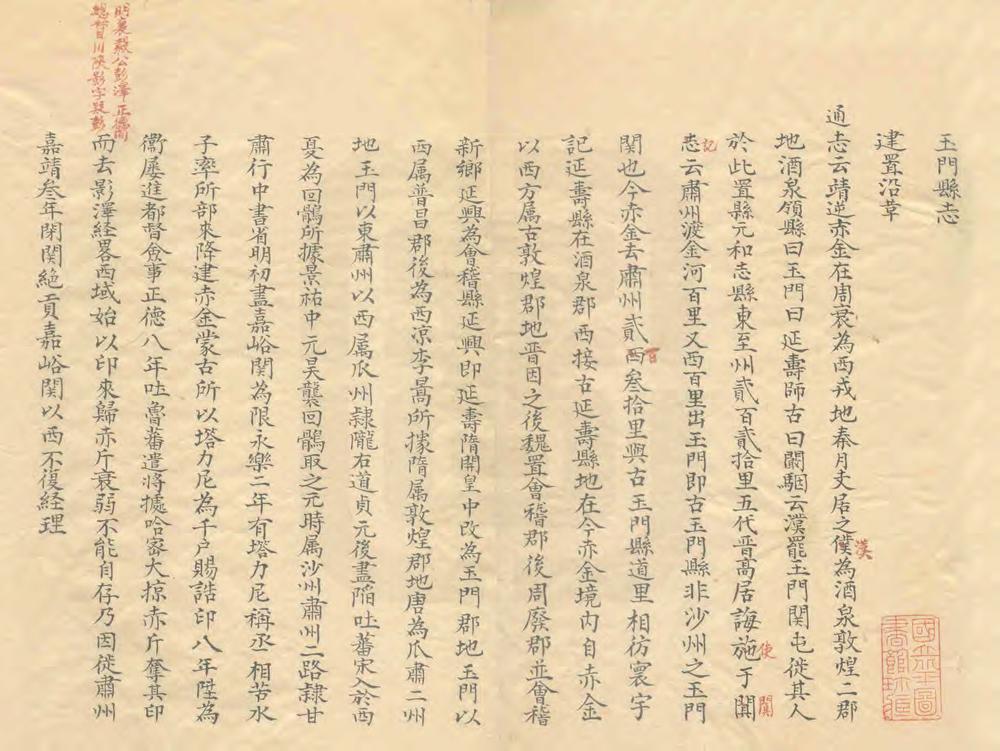 玉門縣志
建置沿革
通志云靖逆赤金在周衰為西戎地秦月支居之僕為酒泉敦煌二郡
漢
地酒泉領縣曰玉門曰延壽師古曰闞駰云漢罷玉門關屯徙其人
於此置縣元和志縣東至州貳百貳拾里五代晉高居誨施于闐
使
闐
志云肅州渡金河百里又西百里出玉門即古玉門縣非沙州之玉門
記
關也今赤金去肅州貳西叁拾里與古玉門縣道里相彷寰宇
百
記延壽縣在酒泉郡西接古延壽縣地在今赤金境內自赤金
以西方属古敦煌郡地晉因之後魏置會稽郡後周廢郡並會稽
新鄉延興為會稽縣延興即延壽隋開皇中改為玉門郡地玉門以
西属晉昌郡後為西凉李暠所據隋属敦煌郡地唐為瓜肅二州
地玉門以東肅州以西属瓜州隷隴右道貞元後盡陷吐蕃宋入於西
夏為回鶻所據景祐中元昊襲回鶻取之元時属沙州肅州二路隷甘
肅行中書省明初畫嘉峪關為限永樂二年有塔力尼稱丞相苦水
子率所部來降建赤金蒙古所以塔力尼為千户賜誥印八年陞為
衛屢進都督僉事正德八年吐魯蕃遣將據哈宻大掠赤斤奪其印
而去影澤経畧西域始以印來歸赤斤衰弱不能自存乃因徙肅州
明襄毅公彭澤正德間
總督川陝影字疑彭
嘉靖叁年閉関絶貢嘉峪関以西不復経理